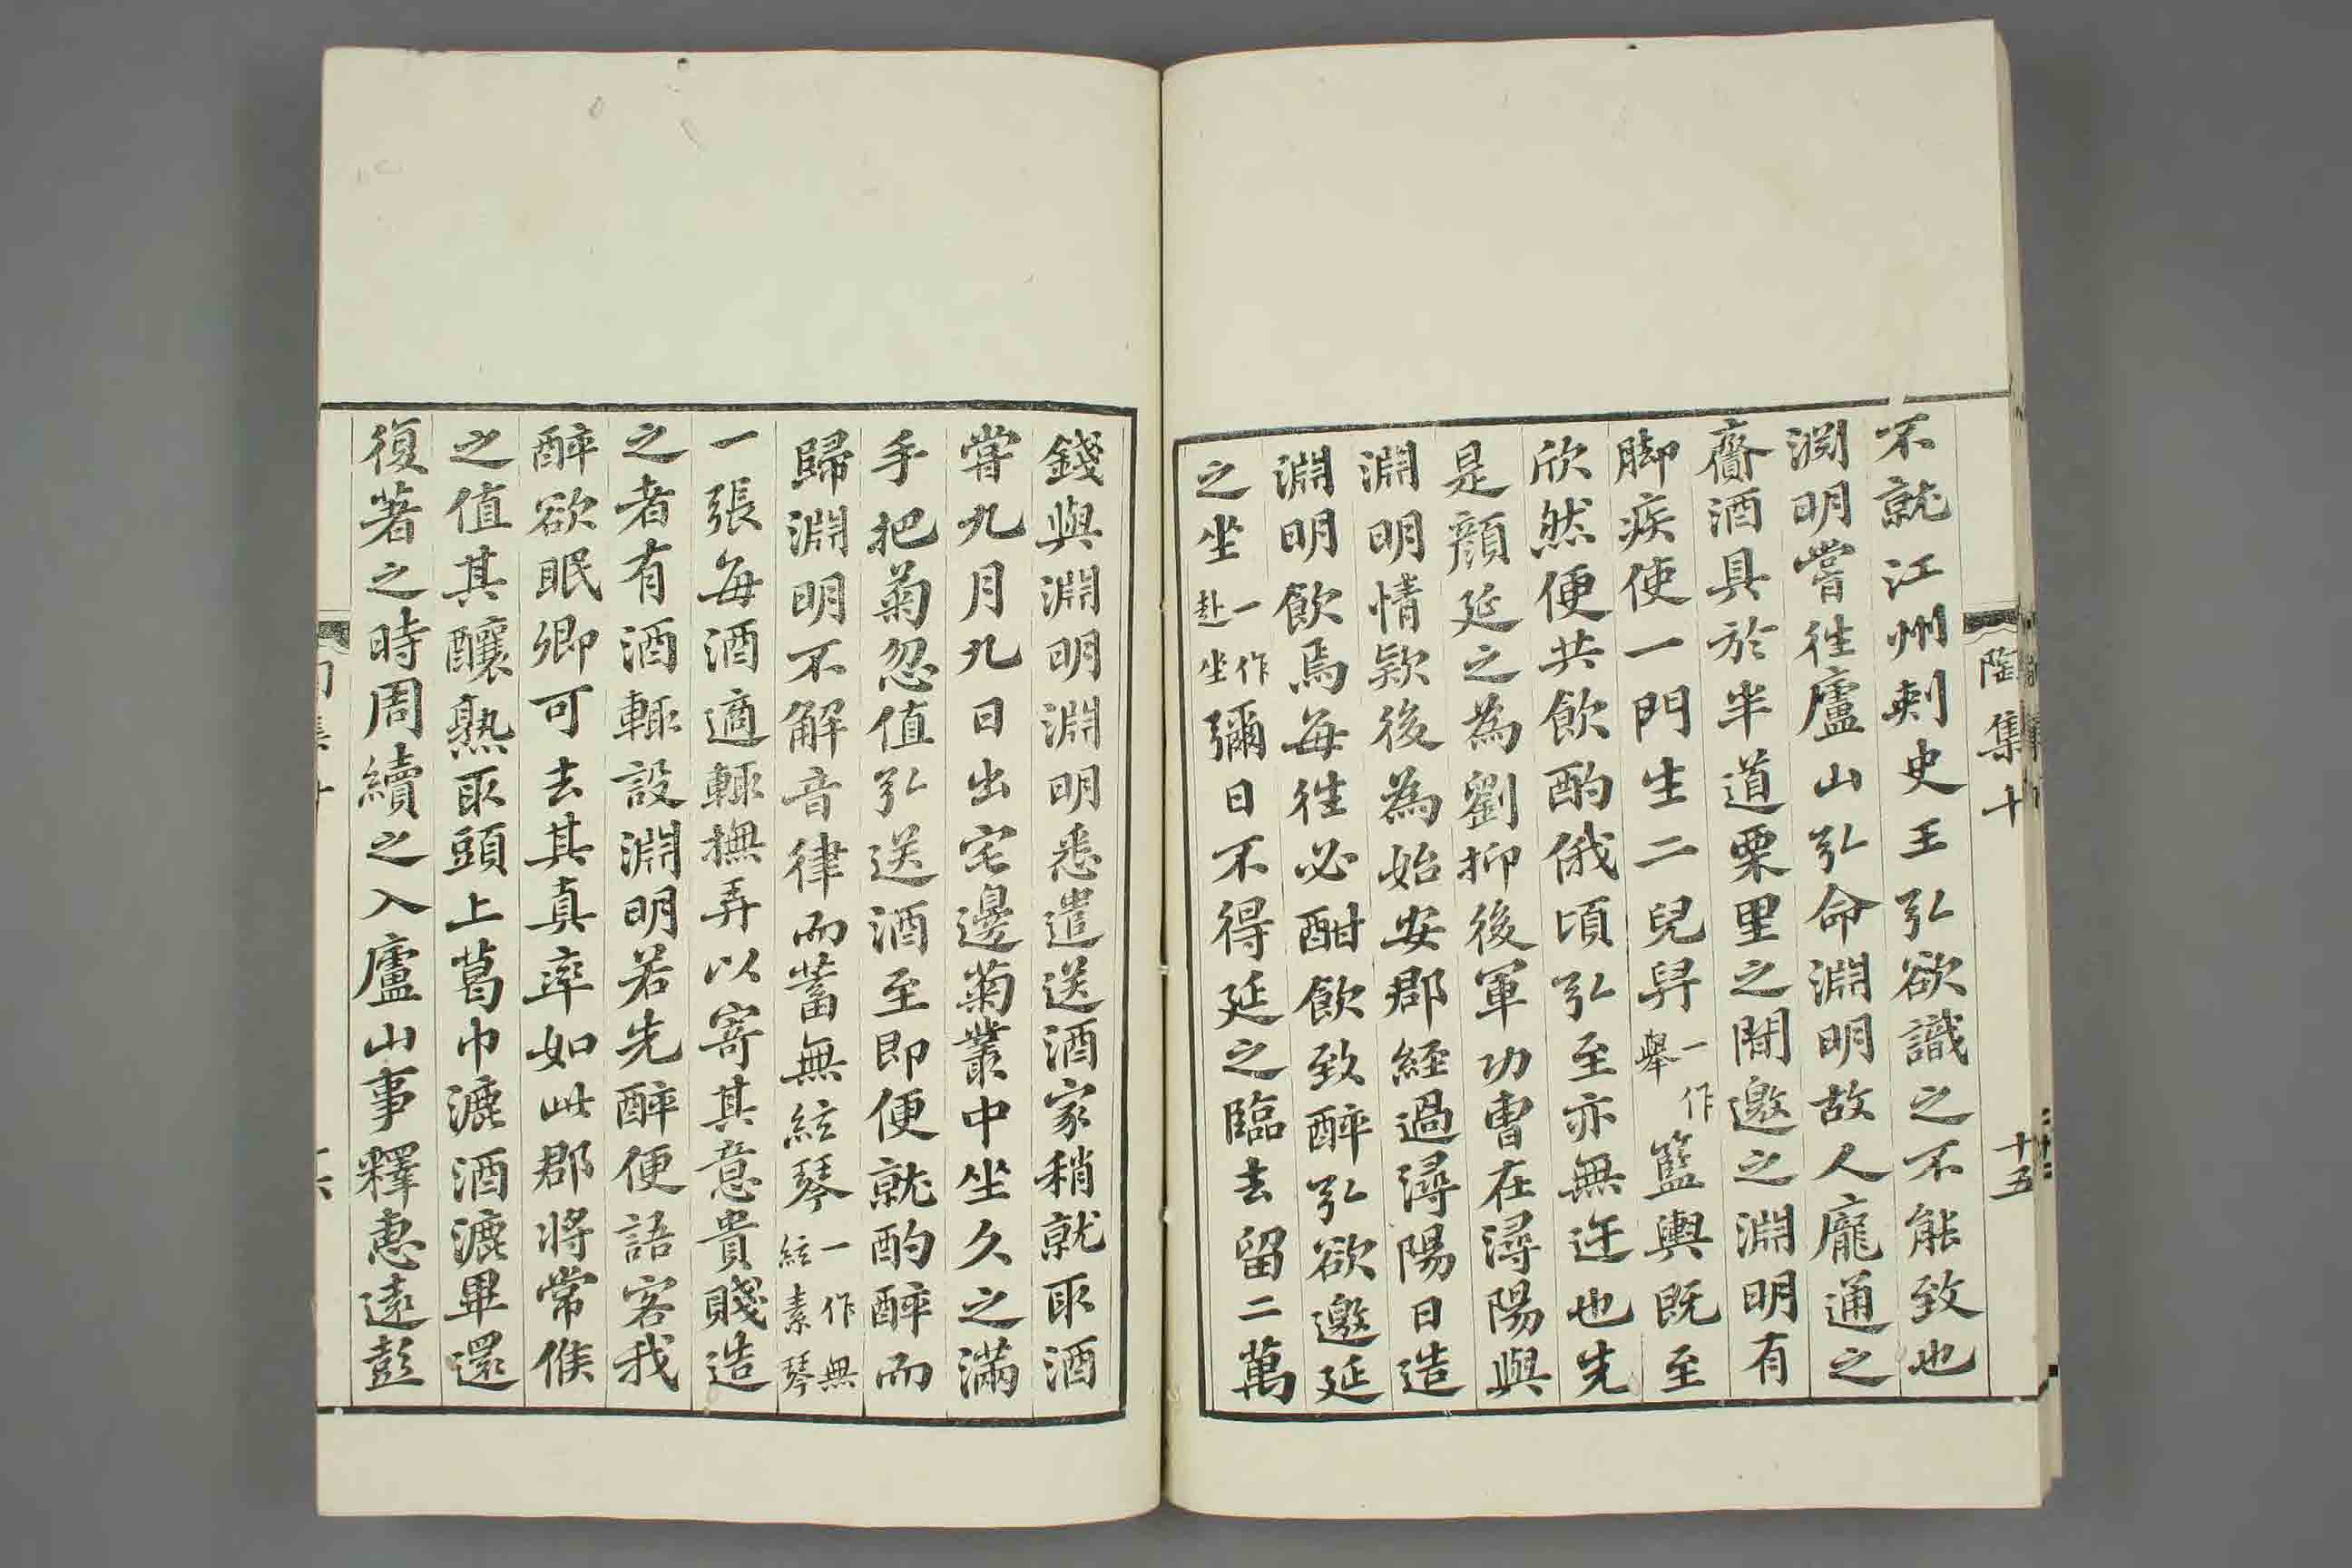 陶集十
十五
不就江州刺史王弘欲識之不能致也
淵明嘗往廬山弘命淵明故人龐通之
齎酒具於半道栗里之間邀之淵明有
脚疾使一門生二兒舁一作舉籃輿既至
欣然便共飲酌俄頃弘至亦無迕也先
是顏延之為劉抑後軍功曹在潯陽與
淵明情款後為始安郡經過潯陽日造
淵明飲焉每往必酣飲致醉弘欲邀延
之坐一作赴坐彌日不得延之臨去留二萬
錢與淵明淵明悉遣送酒家稍就取酒
嘗九月九日出宅邊菊叢中坐久之滿
手把菊忽值弘送酒至即便就酌醉而
歸淵明不解音律而蓄無絃琴一作無絃素琴
一張每酒適輒撫弄以寄其意貴賤造
之者有酒輒設淵明若先醉便語客我
醉欲眠卿可去其真率如此郡將常候
之值其釀熟取頭上葛巾漉酒漉畢還
復著之時周續之入廬山事釋惠遠彭